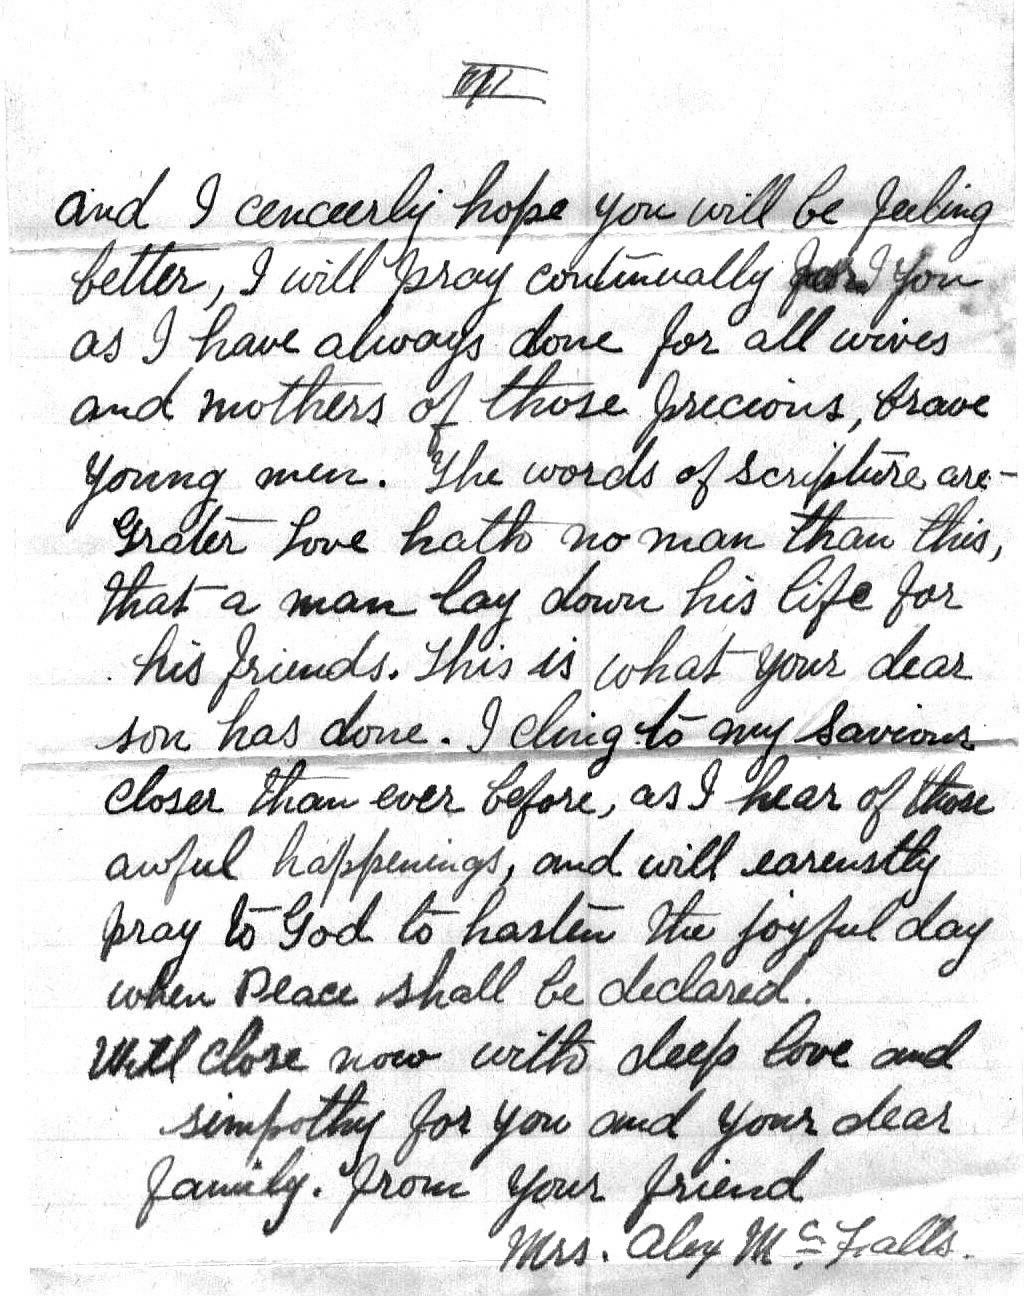 III
and I cenceerly hope you will be feeling
better, I will pray continually for you
as I have always done for all wives
and mothers of those precious, brave
young men. The words of scripture are-
Grater Love hath no man than this,
that a man lay down his life for
his friends. This is what your dear
son has done. I cling to my Saviour
closer than ever before, as I hear of those
awful happenings, and will earenstly
pray to God to hasten the joyful day
when Peace shall be declared.
Will close now with deep love and
simpothy for you and your dear
family. from your friend
Mrs. Alex Mc Falls.